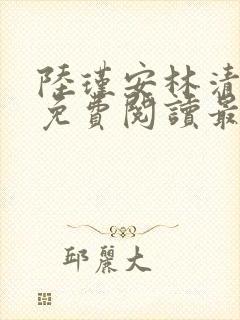 陸瑾安林清
免費閱讀最
邱麗大